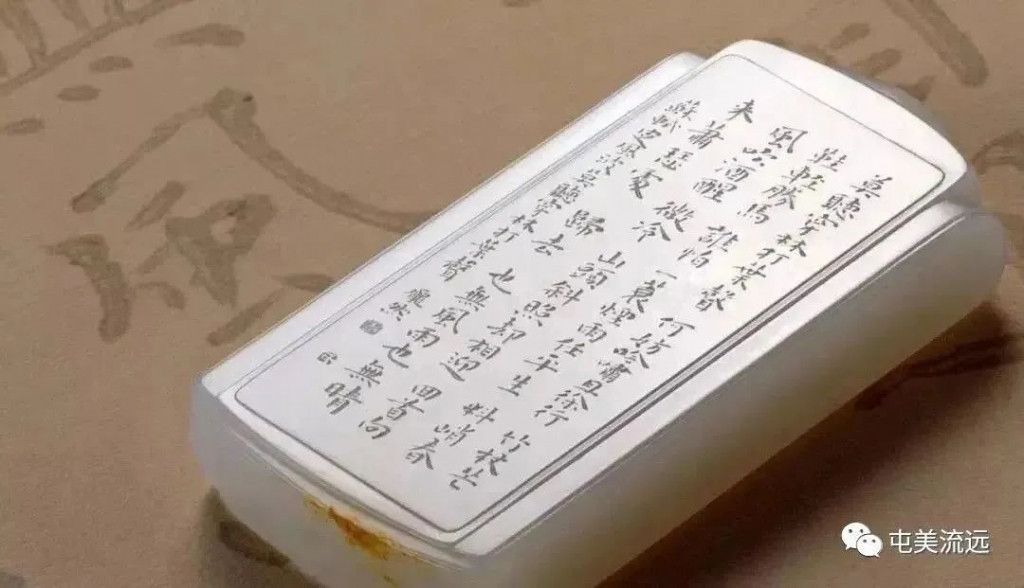 莫聽穿林打葉聲 何妨吟嘯且徐行 竹杖芒
鞋輕勝馬 誰怕 一蓑煙雨任平生 料峭春
風吹酒醒 微冷 山頭斜照却相迎 回首向
来蕭瑟處 歸去 也無風雨也無晴
蘇軾定風波 莫聽穿林打葉聲 然
屯美流远